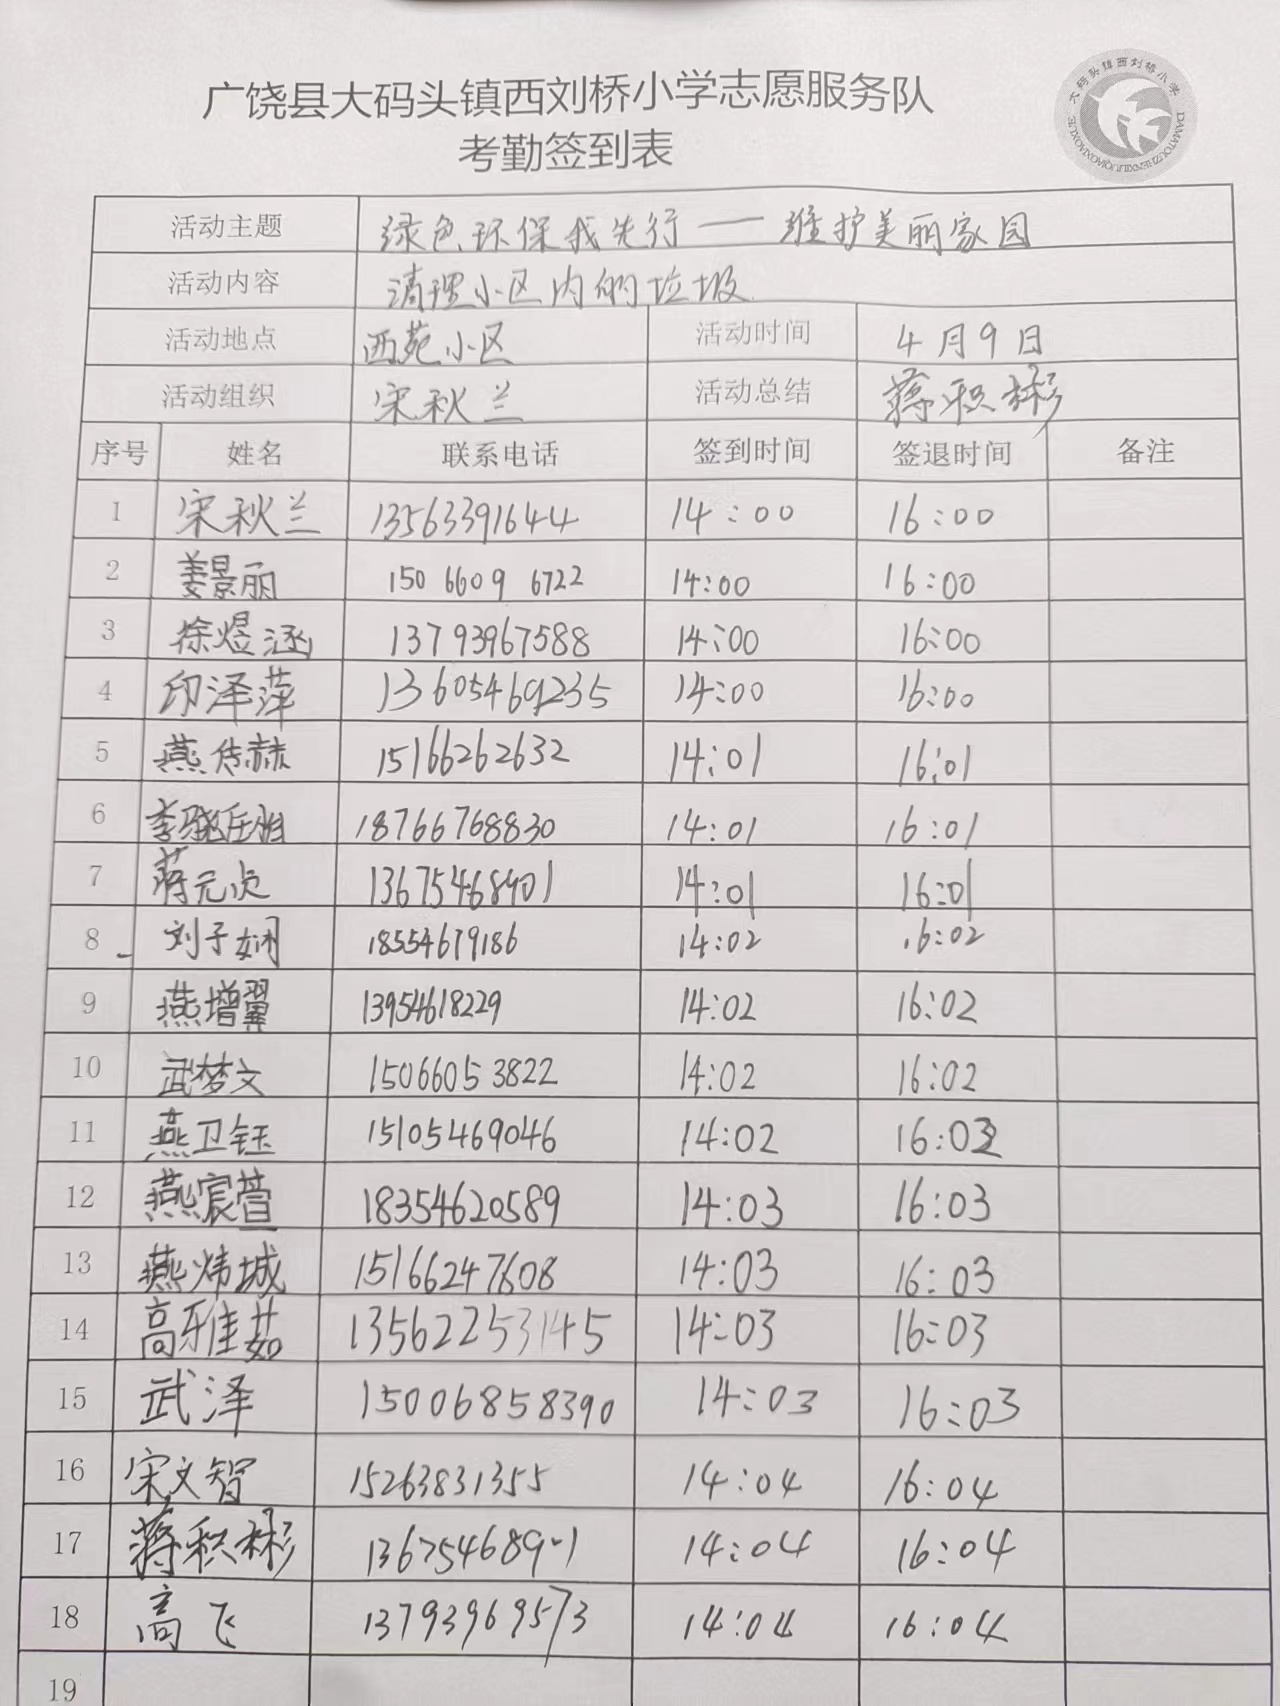 广饶县大码头镇西刘桥小学志愿服务队
考勤签到表
大码头镇西刘桥小学
DAMATOUZHENXILIUQIAOXIAOXUE
活动主题 绿色环保我先行——维护美丽家园
活动内容 清理小区内的垃圾
活动地点 西苑小区 活动时间 4月9日
活动组织 宋秋兰 活动总结 蒋积彬
序号 姓名 联系电话 签到时间 签退时间 备注
1 宋秋兰 13563391644 14:00 16:00
2 姜景丽 150 6609 6722 14:00 16:00
3 徐煜涵 13793967588 14:00 16:00
4 印泽萍 13605469235 14:00 16:00
5 燕传赫 15166262632 14:01 16:01
6 18766768830 14:01 16:01
7 蒋元贞 13675468901 14:01 16:01
8 刘子娴 18554679186 14:02 16:02
9 燕增翼 13954618229 14:02 16:02
10 武梦文 15066053822 14:02 16:02
11 燕卫钰 15105469046 14:02 16:02
12 燕宸萱 18354620589 14:03 16:03
13 燕炜城 15166247608 14:03 16:03
14 高雅茹 13562253145 14:03 16:03
15 武泽 15006858390 14:03 16:03
16 宋文智 15263831355 14:04 16:04
17 蒋积彬 13675468901 14:04 16:04
18 高飞 13793969573 14:04 16:04
19